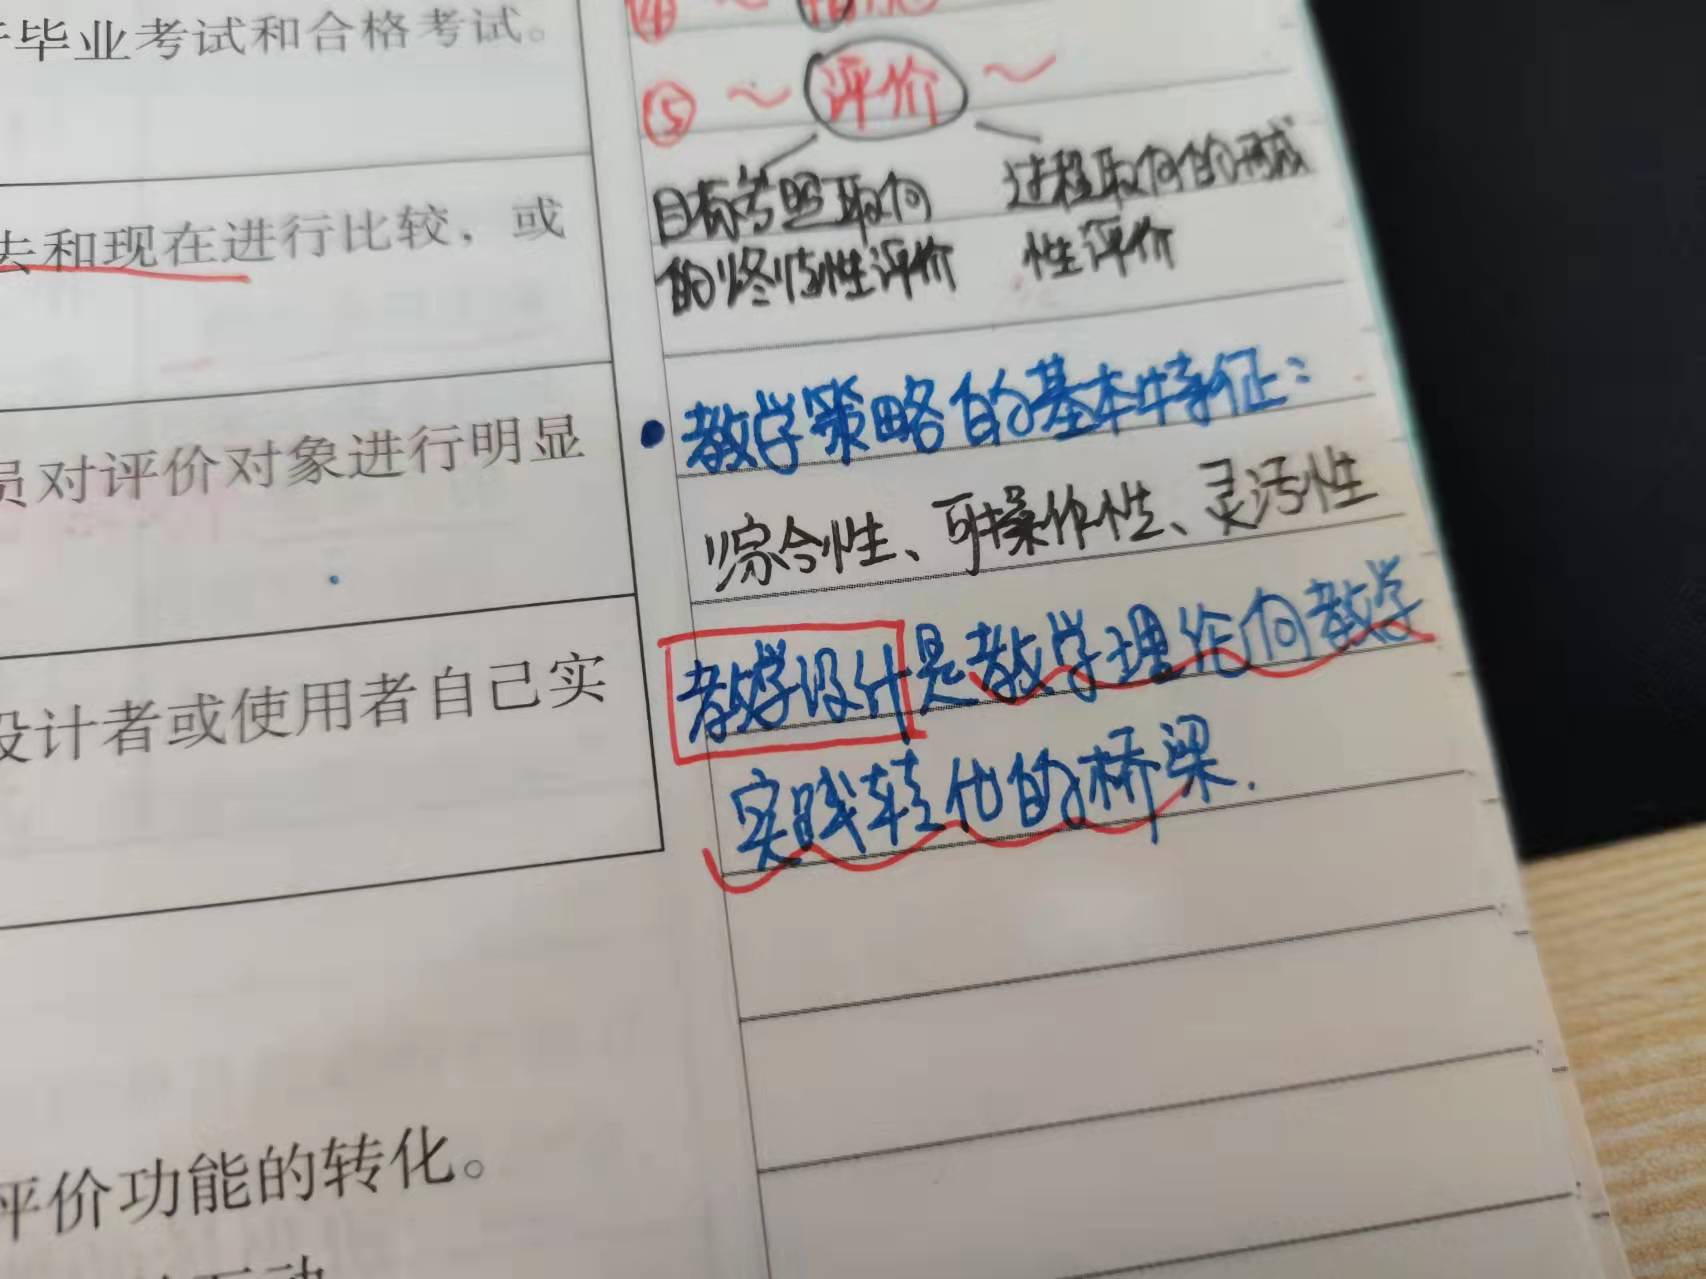 毕业考试和合格考试。
去和现在进行比较，或
员对评价对象进行明显
设计者或使用者自己实
评价功能的转化。
④ ~
⑤ ~ 评价 ~
目标参照取向
的终结性评价
过程取向的形成
性评价
• 教学策略的基本特征：
综合性、可操作性、灵活性
教学设计是教学理论向教学
实践转化的桥梁.